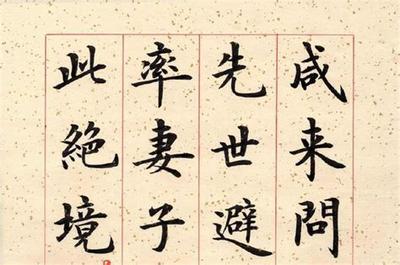 咸来問
先世避
率妻子
此絶境